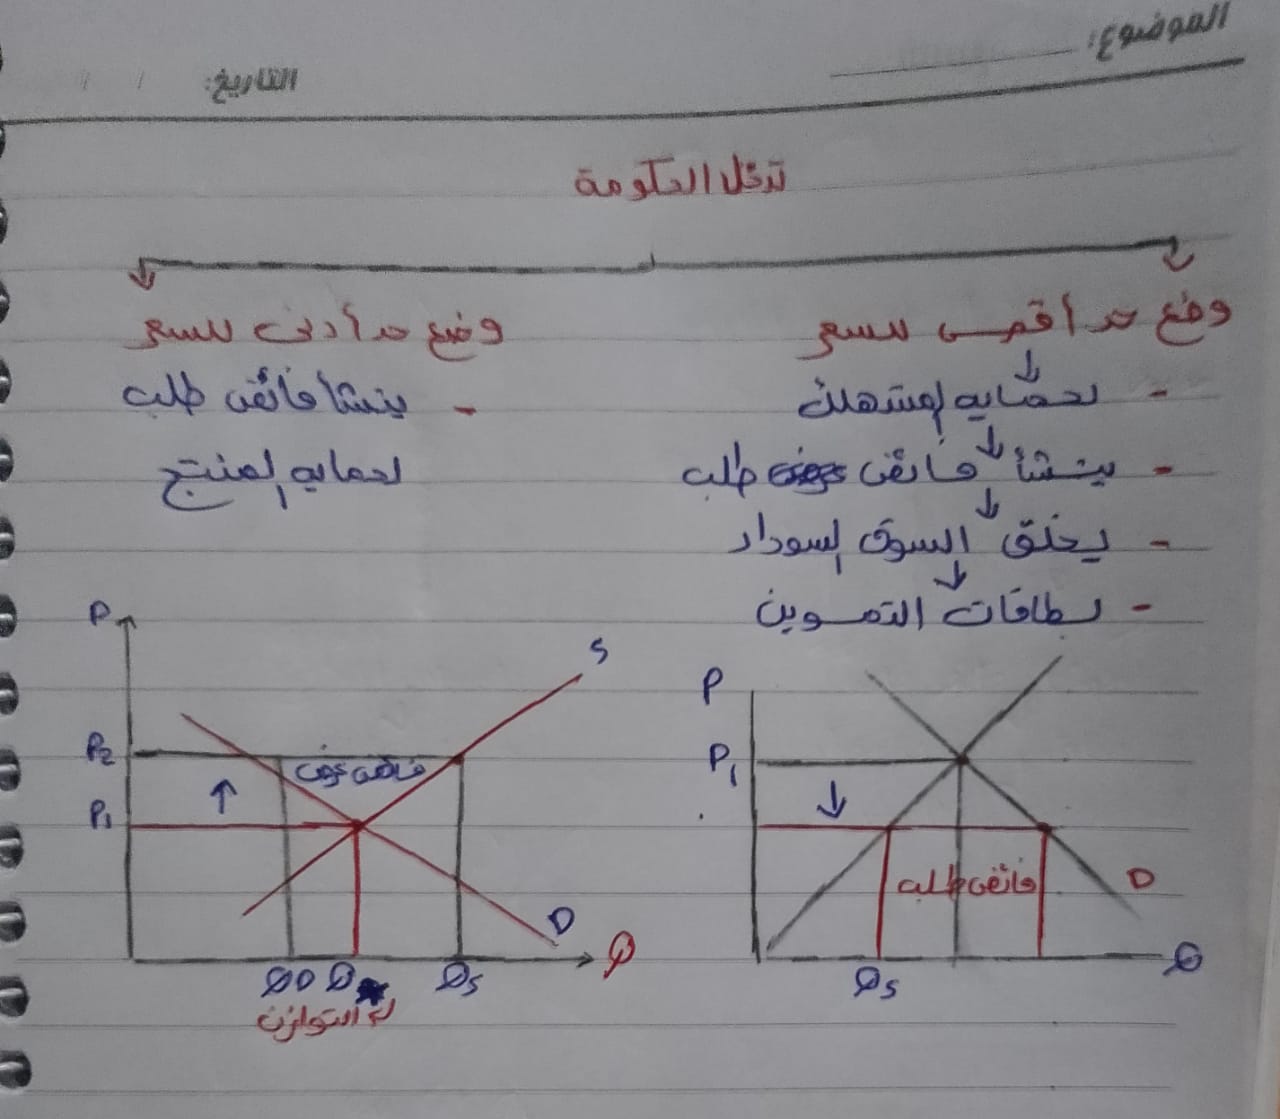 الموضوع:
التاريخ: / /
تدخل الحكومة
وضع حد أقصى للسعر
- لحمايه المستهلك
- ينشأ فائض طلب
- يخلق السوق السوداء
- بطاقات التموين
وضع حد أدنى للسعر
- ينشأ فائض طلب
لحمايه المنتج
P
P1
فائض طلب
D
Qs
Q
P
S
P2
فائض عرض
P1
D
Q
QD Q Qs
التوازن